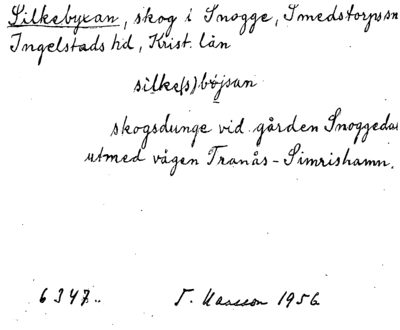 Silkebyxan, skog i Snogge, Smedstorpssn
Ingelstads hd, Krist. län
silke(s)böjsan
skogsdunge vid gården Snoggeda
utmed vägen Tranås-Simrishamn.
6347.. 1956